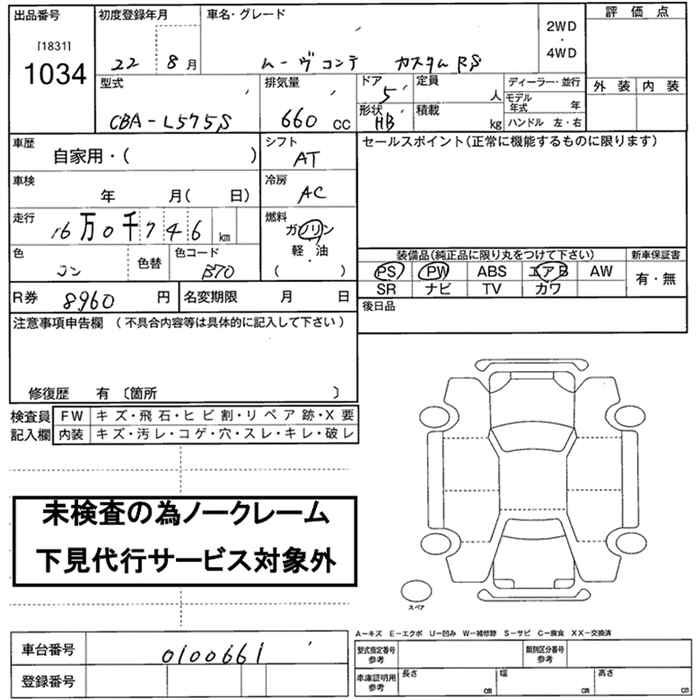 出品番号
[1831]
1034
初度登録年月
22 8月
車名・グレード
ムーヴコンテ カスタムRS
2WD
・
4WD
評価点
外装 内装
型式
CBA-L575S
排気量
660 cc
ドア
5
形状
HB
定員
人
積載
kg
ディーラー・並行
モデル年式 年
ハンドル 左・右
車歴
自家用・( )
シフト
AT
車検
年 月( 日)
冷房
AC
走行
16万0千746km
燃料
ガソリン
・
軽・油
( )
色
コン
色替
色コード
B70
R券 8960 円
名変期限 月 日
セールスポイント(正常に機能するものに限ります)
装備品(純正品に限り丸をつけて下さい)
新車保証書
PS PW ABS エアB AW
SR ナビ TV カワ
有・無
後日品
注意事項申告欄 (不具合内容等は具体的に記入して下さい)
修復歴 有 〔箇所 〕
検査員記入欄
FW キズ・飛石・ヒビ割・リペア跡・X要
内装 キズ・汚レ・コゲ・穴・スレ・キレ・破レ
未検査の為ノークレーム
下見代行サービス対象外
スペア
A-キズ E-エクボ U-凹み W-補修跡 S-サビ C-腐食 XX-交換済
車台番号
0100661
登録番号
型式指定番号
参考
類別区分番号
参考
車庫証明用
参考
長さ cm
幅 cm
高さ cm